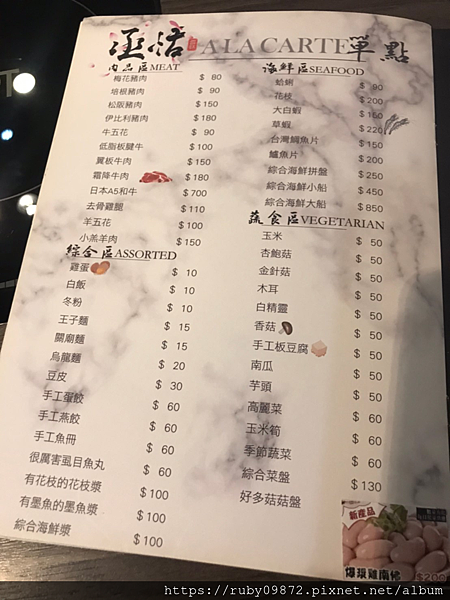 A LA CARTE 單點
肉品區MEAT
梅花豬肉 $ 80
培根豬肉 $ 90
松阪豬肉 $150
伊比利豬肉 $180
牛五花 $ 90
低脂板腱牛 $100
翼板牛肉 $150
霜降牛肉 $180
日本A5和牛 $700
去骨雞腿 $110
羊五花 $100
小羔羊肉 $150
綜合區ASSORTED
雞蛋 $ 10
白飯 $ 10
冬粉 $ 10
王子麵 $ 15
關廟麵 $ 15
烏龍麵 $ 20
豆皮 $ 30
手工蛋餃 $ 60
手工燕餃 $ 60
手工魚冊 $ 60
很厲害虱目魚丸 $ 60
有花枝的花枝漿 $100
有墨魚的墨魚漿 $100
綜合海鮮漿 $100
海鮮區SEAFOOD
蛤蜊 $ 90
花枝 $200
大白蝦 $160
草蝦 $220
台灣鯛魚片 $150
鱸魚片 $200
綜合海鮮拼盤 $250
綜合海鮮小船 $450
綜合海鮮大船 $850
蔬食區VEGETARIAN
玉米 $ 50
杏鮑菇 $ 50
金針菇 $ 50
木耳 $ 50
白精靈 $ 50
香菇 $ 50
手工板豆腐 $ 50
南瓜 $ 50
芋頭 $ 50
高麗菜 $ 60
玉米筍 $ 60
季節蔬菜 $ 60
綜合菜盤 $130
好多菇菇盤
新產品
爆漿雞南佛 $200
https://ruby09872.pixnet.net/album